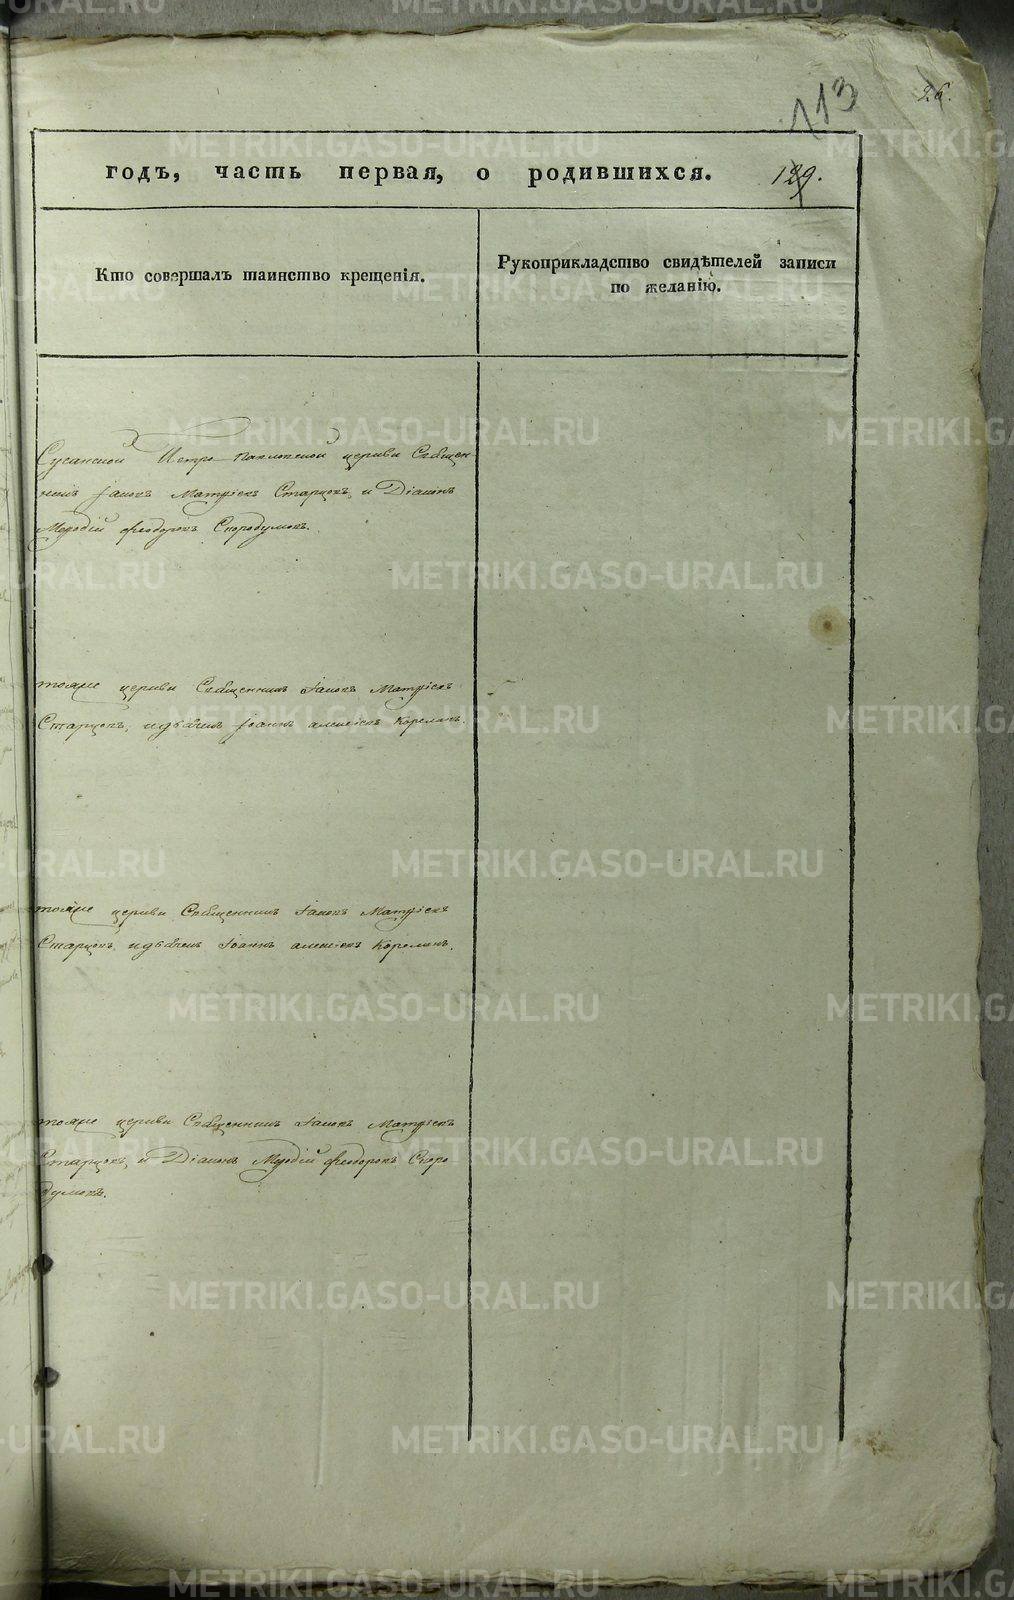 113
26.
годъ, часть первая, о родившихся.
129.
Кто совершалъ таинство крещенія.
Рукоприкладство свидѣтелей записи
по желанію.
Сусанской Петро Павловской церкви Священ-
никъ Іаковъ Матфіевъ Старцовъ, и Діаконъ
Меѳодій Феодоровъ Скородумовъ.
тояже церкви Священникъ Іаковъ Матфіевъ
Старцовъ, идьячекъ Іоаннъ алексіевъ
тояже церкви Священникъ Іаковъ Матфіевъ
Старцовъ идьячекъ Іоаннъ алексіевъ
тояже церкви Священникъ Іаковъ Матфіевъ
Старцовъ, и Діаконъ Меѳодій Феодоровъ Скоро
думовъ.
METRIKI.GASO-URAL.RU